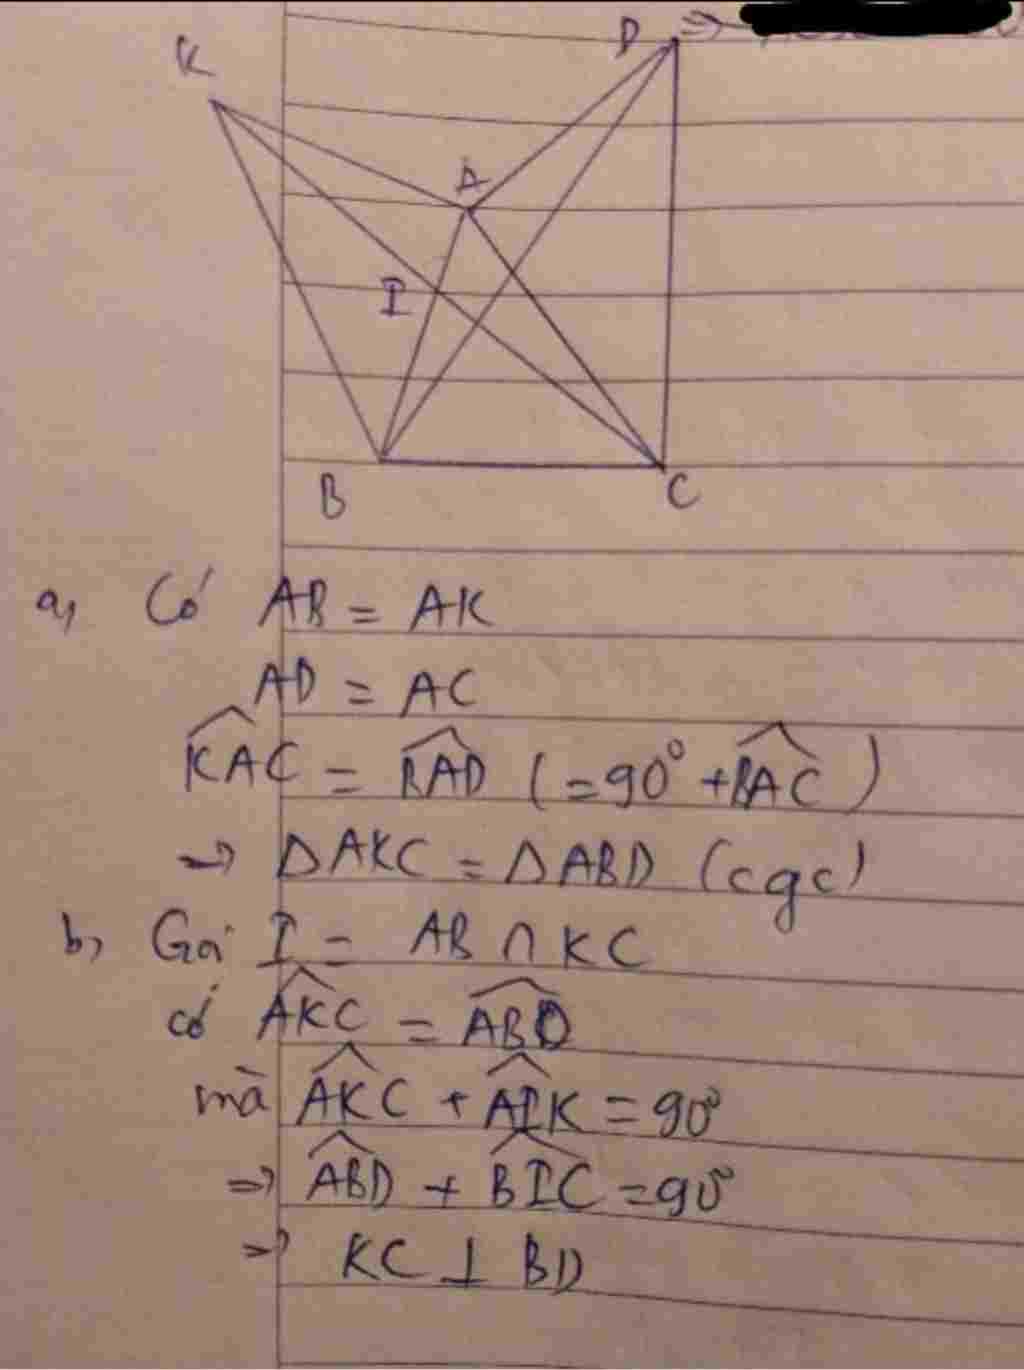 K
D
A
I
B
C
a, Có AB = AK
AD = AC
\widehat{KAC} = \widehat{BAD} (=90° + \widehat{BAC})
→ ΔAKC = ΔABD (cgc)
b, Gọi I = AB ∩ KC
có \widehat{AKC} = \widehat{ABD}
mà \widehat{AKC} + \widehat{AIK} = 90°
=> \widehat{ABD} + \widehat{BIC} = 90°
=> KC ⊥ BD